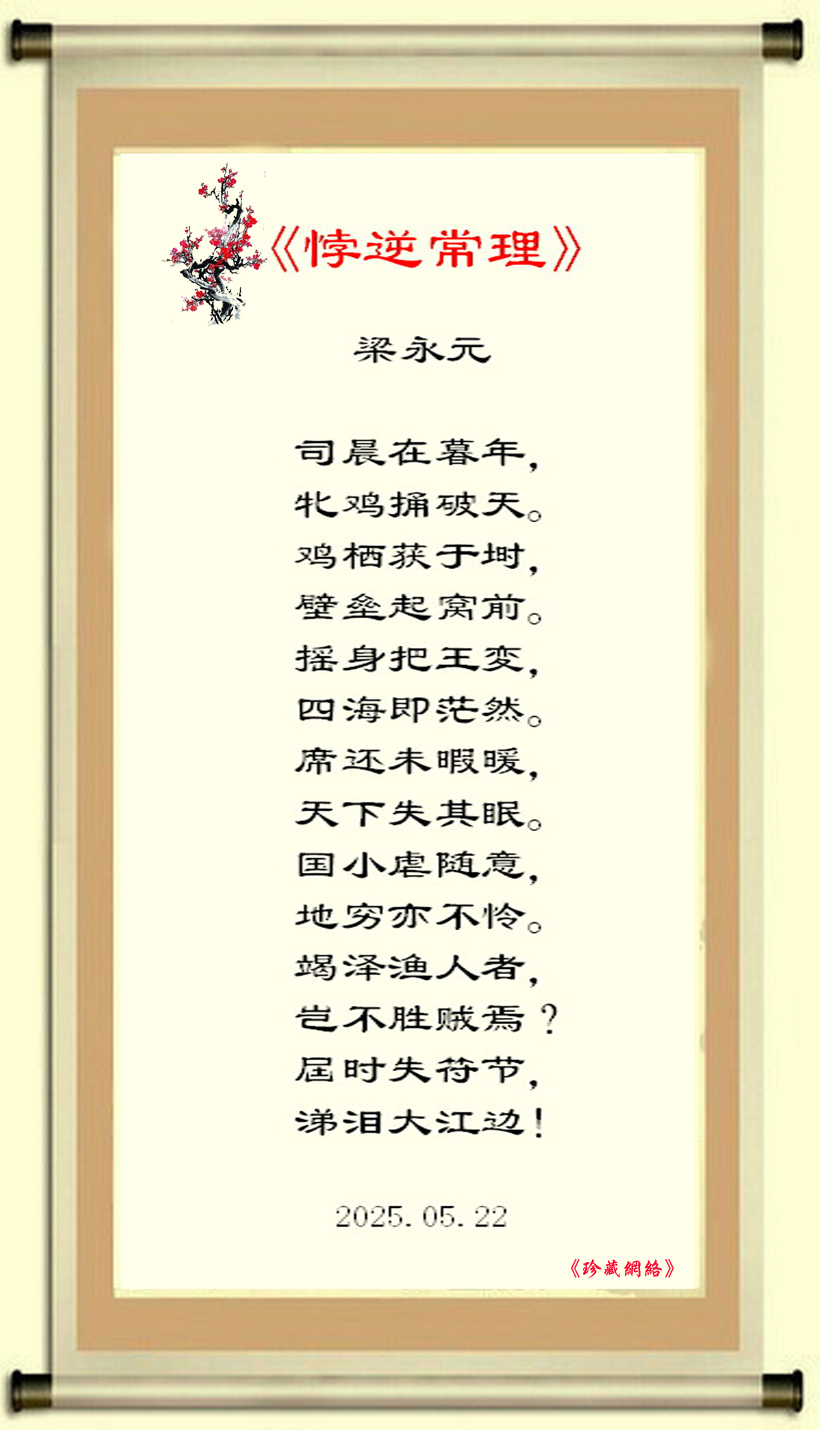 《悖逆常理》
梁永元
司晨在暮年，
牝鸡捅破天。
鸡栖获于埘，
壁垒起窝前。
摇身把王变，
四海即茫然。
席还未暇暖，
天下失其眠。
国小虐随意，
地穷亦不怜。
竭泽渔人者，
岂不胜贼焉？
届时失符节，
涕泪大江边！
2025.05.22
《珍藏網絡》